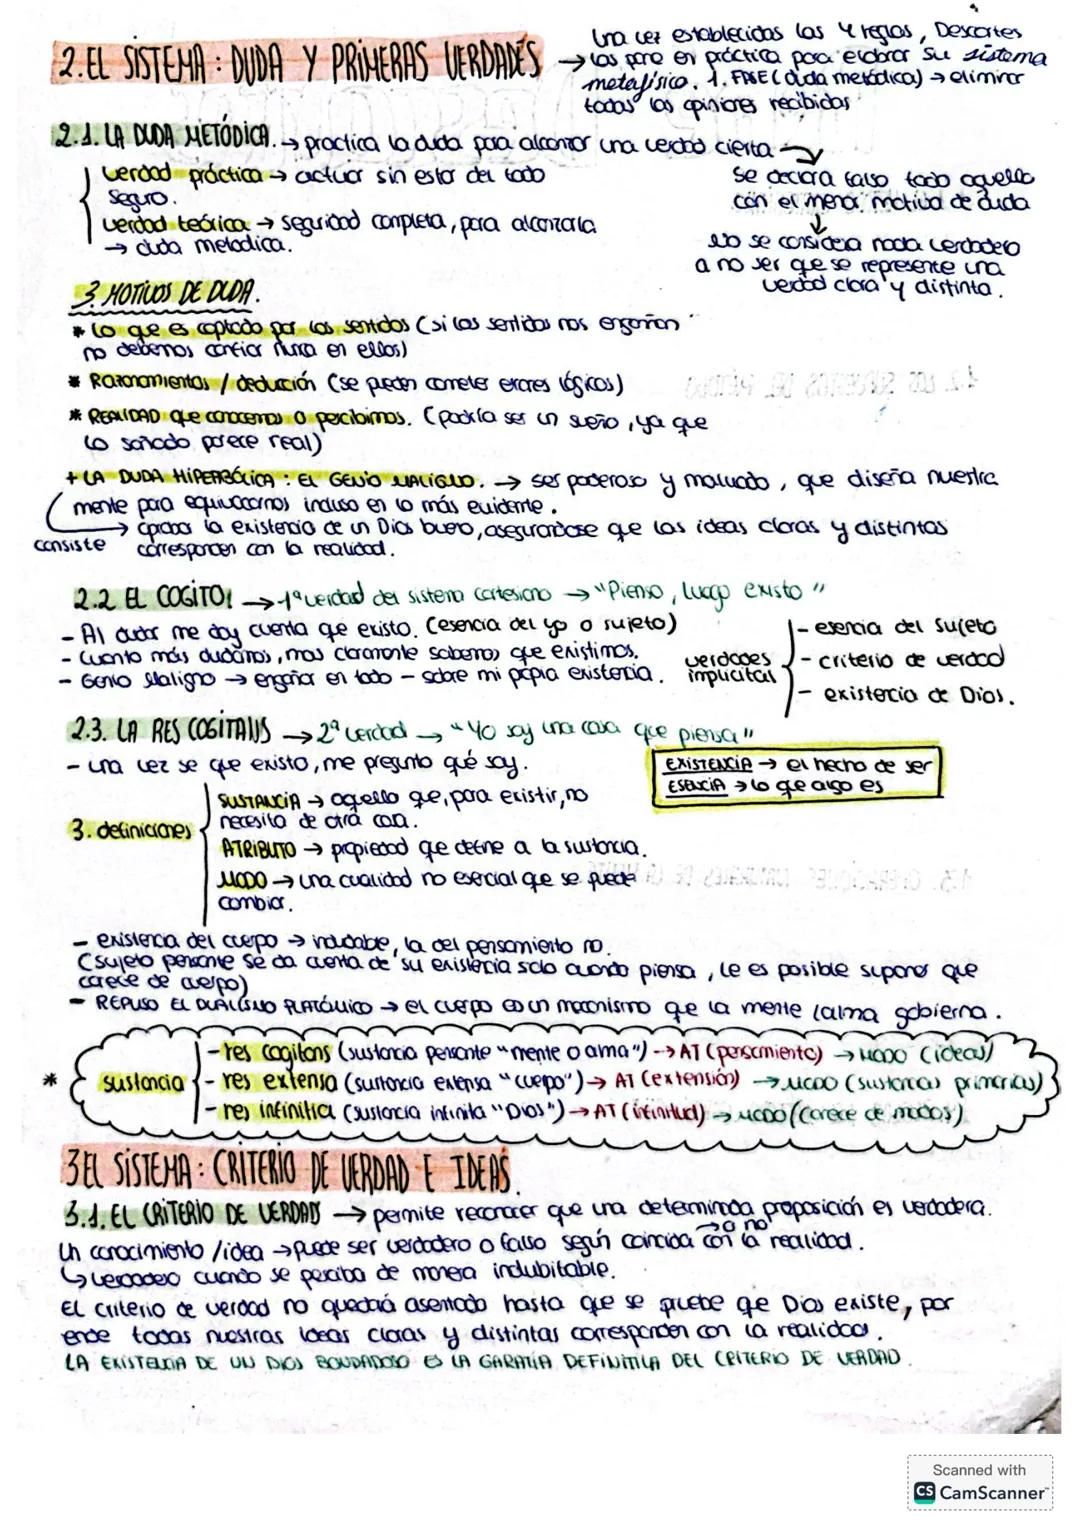 2. EL SISTEMA: DUDA Y PRIMERAS VERDADES → Una vez establecidas las 4 reglas, Descartes
las pone en práctica para elaborar su sistema
metafísico. 1. FASE (duda metódica) → eliminar
todas las opiniones recibidas
2.1. LA DUDA METÓDICA. → practica la duda para alcanzar una verdad cierta →
se declara falso todo aquello
con el menor motivo de duda
↓
No se considera nada verdadero
a no ser que se represente una
verdad clara y distinta.
verdad práctica → actuar sin estar del todo
seguro.
verdad teórica → seguridad completa, para alcanzarla
→ duda metodica.
3 MOTIVOS DE DUDA.
* Lo que es captado por los sentidos (si los sentidos nos engañan
no debemos confiar nunca en ellos)
* Razonamientos / deducción (se pueden cometer errores lógicos)
* REALIDAD que conocemos o percibimos. (podría ser un sueño, ya que
lo soñado parece real)
+ LA DUDA HIPERBÓLICA: EL GENIO MALIGNO. → ser poderoso y malvado, que diseña nuestra
mente para equivocarnos incluso en lo más evidente.
consiste → la existencia de un Dios bueno, asegurandose que las ideas claras y distintas
corresponden con la realidad.
2.2 EL COGITO: → 1ª verdad del sistema cartesiano → "Pienso, luego existo"
- Al dudar me doy cuenta que existo. (esencia del yo o sujeto)
- Cuanto más dudamos, mas claramente sabemos que existimos.
- Genio Maligno → engañar en todo - sobre mi propia existencia.
verdades implicitas
- esencia del sujeto
- criterio de verdad
- existencia de Dios.
2.3. LA RES COGITANS → 2ª verdad → "Yo soy una cosa que piensa"
- una vez se que existo, me pregunto qué soy.
EXISTENCIA → el hecho de ser
ESENCIA → lo que algo es
3. definiciones
SUSTANCIA → aquello que, para existir, no
necesita de otra cosa.
ATRIBUTO → propiedad que define a la sustancia.
MODO → una cualidad no esencial que se puede
cambiar.
- existencia del cuerpo → indudable, la del pensamiento no.
(sujeto pensante se da cuenta de su existencia solo cuando piensa, le es posible suponer que
carece de cuerpo)
- REPUSO EL DUALISMO PLATÓNICO → el cuerpo es un mecanismo que la mente/alma gobierna.
* sustancia
- res cogitans (sustancia pensante "mente o alma") → AT (pensamiento) → MODO (ideas)
- res extensa (sustancia extensa "cuerpo") → AT (extensión) → MODO (sustancias primarias)
- res infinitia (sustancia infinita "Dios") → AT (infinitud) → MODO (carece de modos)
3 EL SISTEMA: CRITERIO DE VERDAD E IDEAS.
3.1. EL CRITERIO DE VERDAD → permite reconocer que una determinada proposición es verdadera.
Un conocimiento / idea → puede ser verdadero o falso según coincida → o no con la realidad.
↳ verdadero cuando se perciba de manera indubitable.
El criterio de verdad no quedará asentado hasta que se pruebe que Dios existe, por
ende todas nuestras ideas claras y distintas corresponden con la realidad.
LA EXISTENCIA DE UN DIOS BONDADOSO ES LA GARATÍA DEFINITIVA DEL CRITERIO DE VERDAD.
Scanned with
CS CamScanner